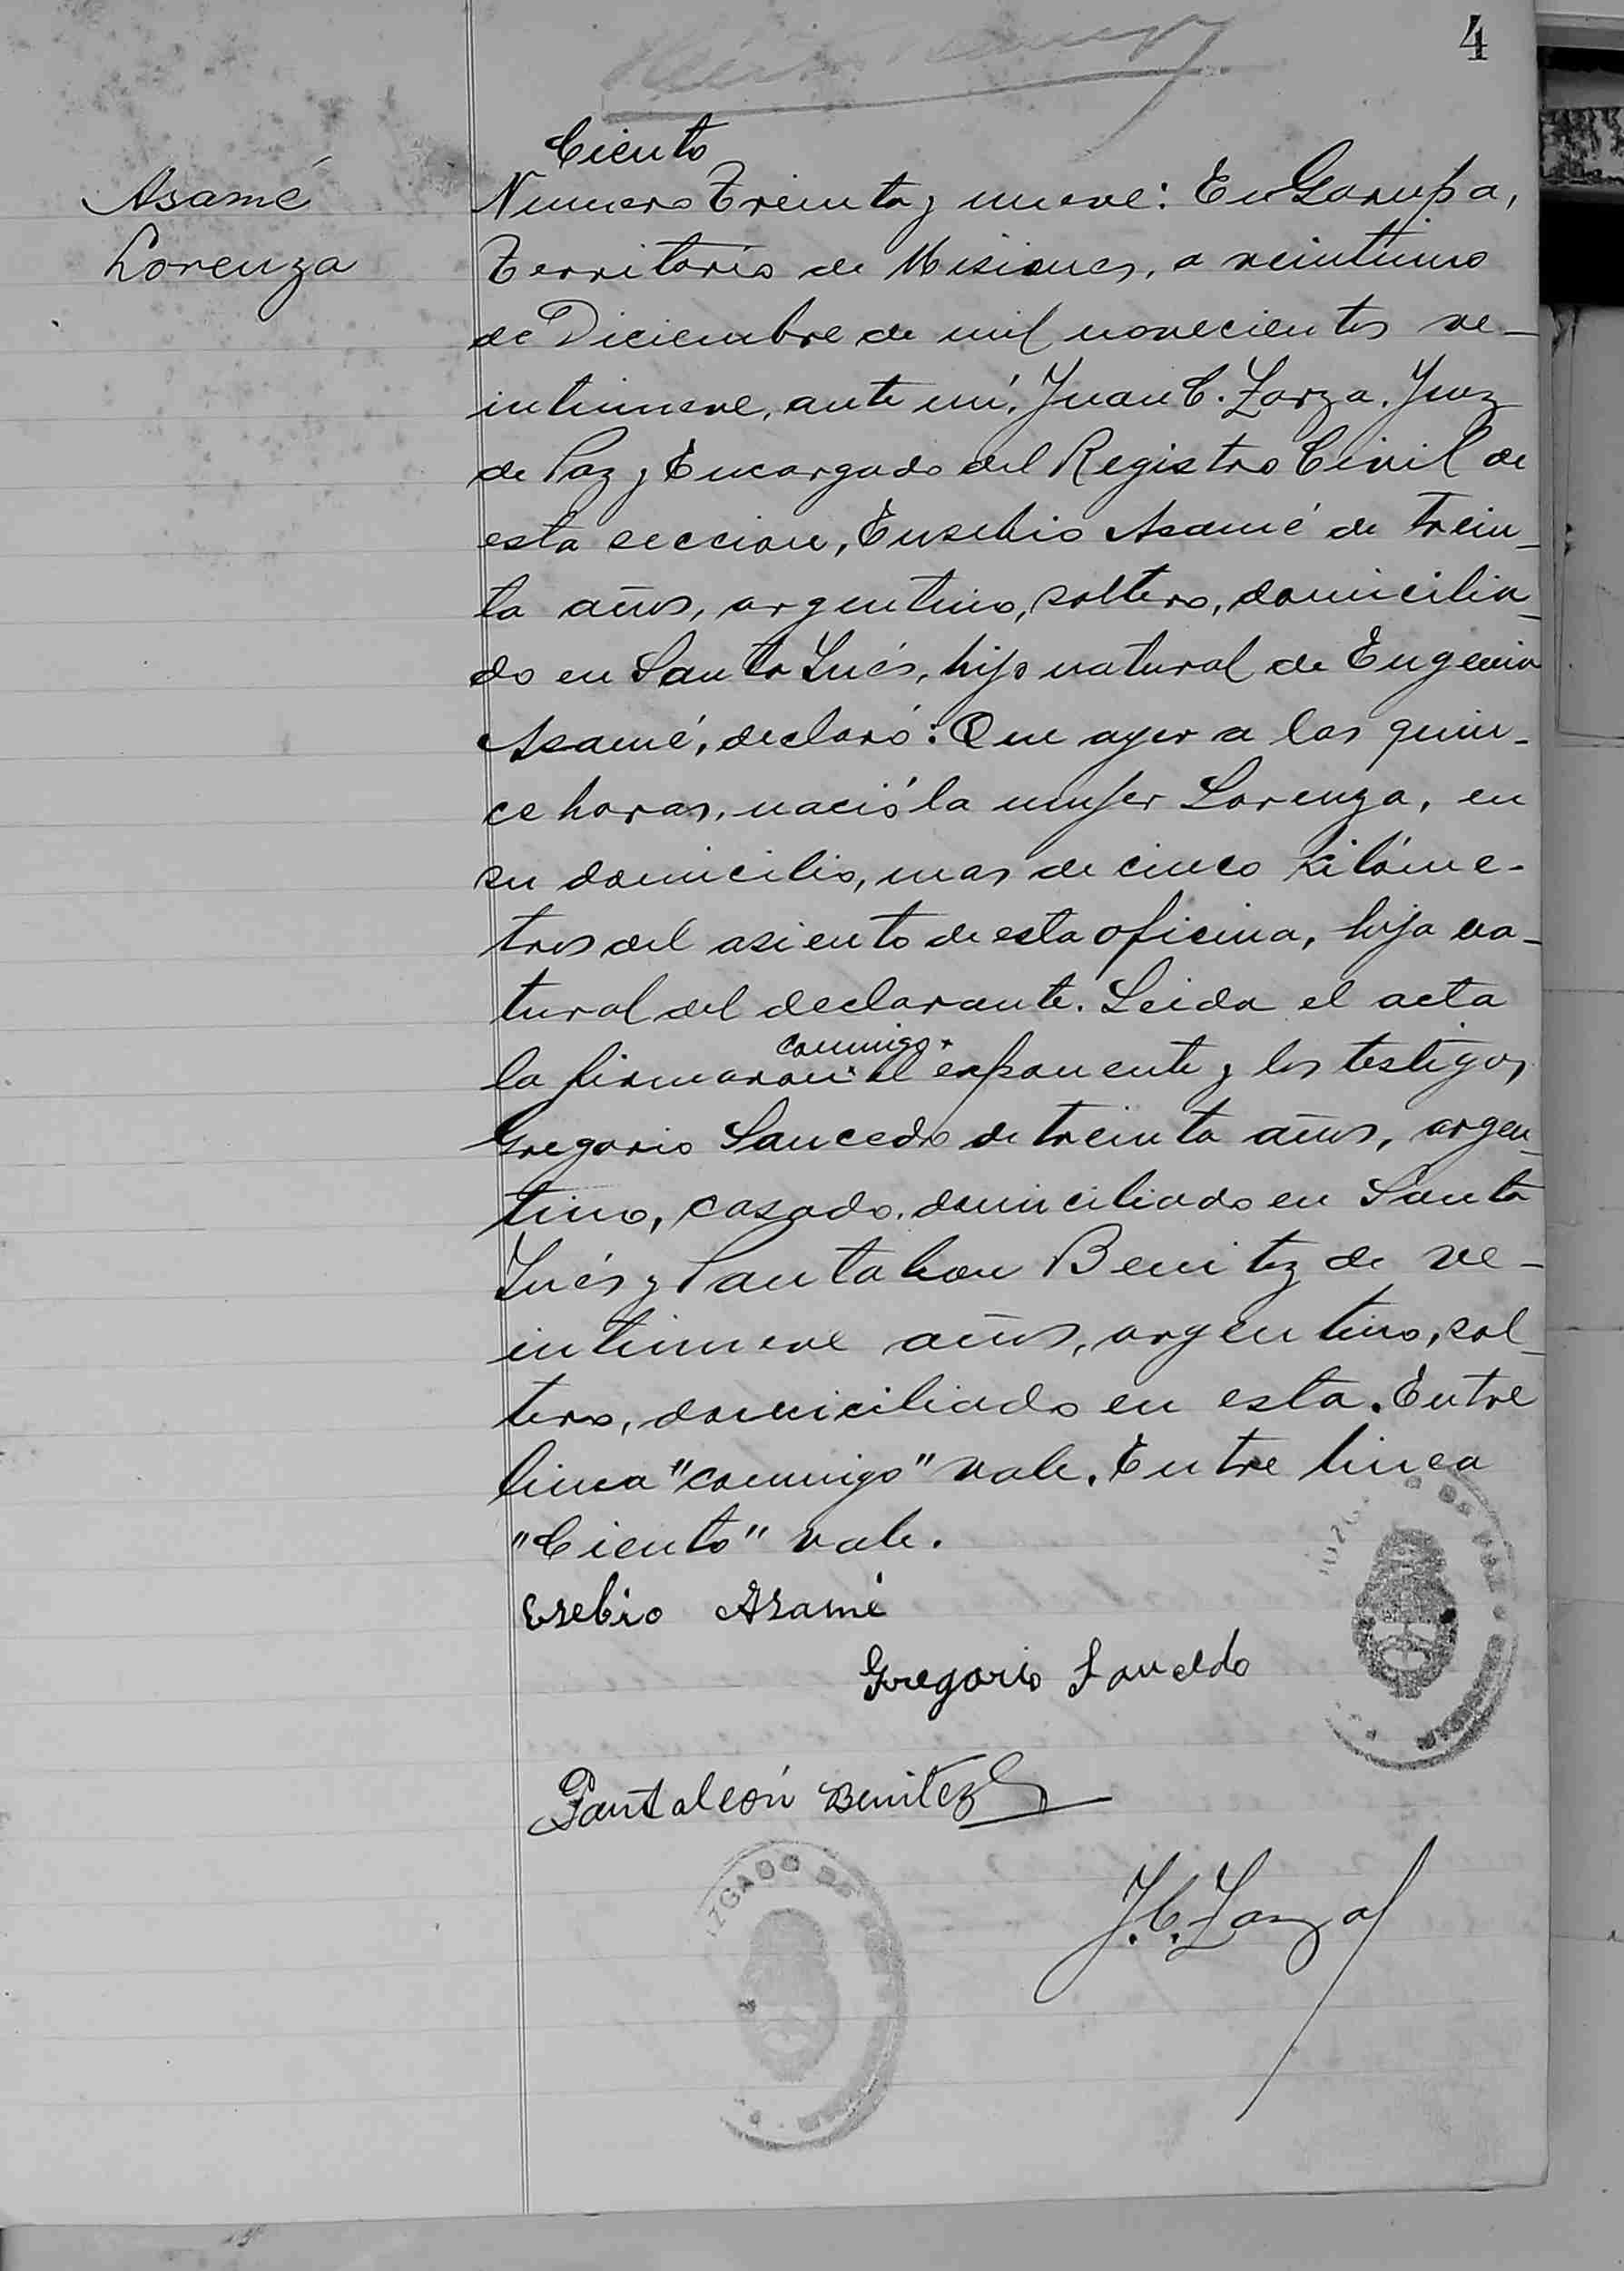 4
Asamé
Lorenza
Ciento
Numero Treinta y nueve: En Garupa,
Territorio de Misiones, a veintiuno
de Diciembre de mil novecientos ve-
intinueve, ante mi, Juan C. Zarza, Juez
de Paz y Encargado del Registro Civil de
esta seccion, Eusebio Asamé de trein-
ta años, argentino, soltero, domicilia-
do en Santa Inés, hijo natural de Eugenia
Asamé, declaró: Que ayer a las quin-
ce horas, nació la mujer Lorenza, en
su domicilio, mas de cinco kilóme-
tros del asiento de esta oficina, hija na-
tural del declarante. Leida el acta
conmigo
la firmaron el exponente y los testigos
Gregorio Saucedo de treinta años, argen-
tino, casado, domiciliado en Santa
Inés y Pantaleon Benitez de ve-
intinueve años, argentino, sol-
tero, domiciliado en esta. Entre
linea "conmigo" vale. Entre linea
"Ciento" vale.
Esebio Asamé
Gregorio Sauceldo
Pantaleón Benitez
J. C. Zarza
JUZGADO DE PAZ
ZGADO DE